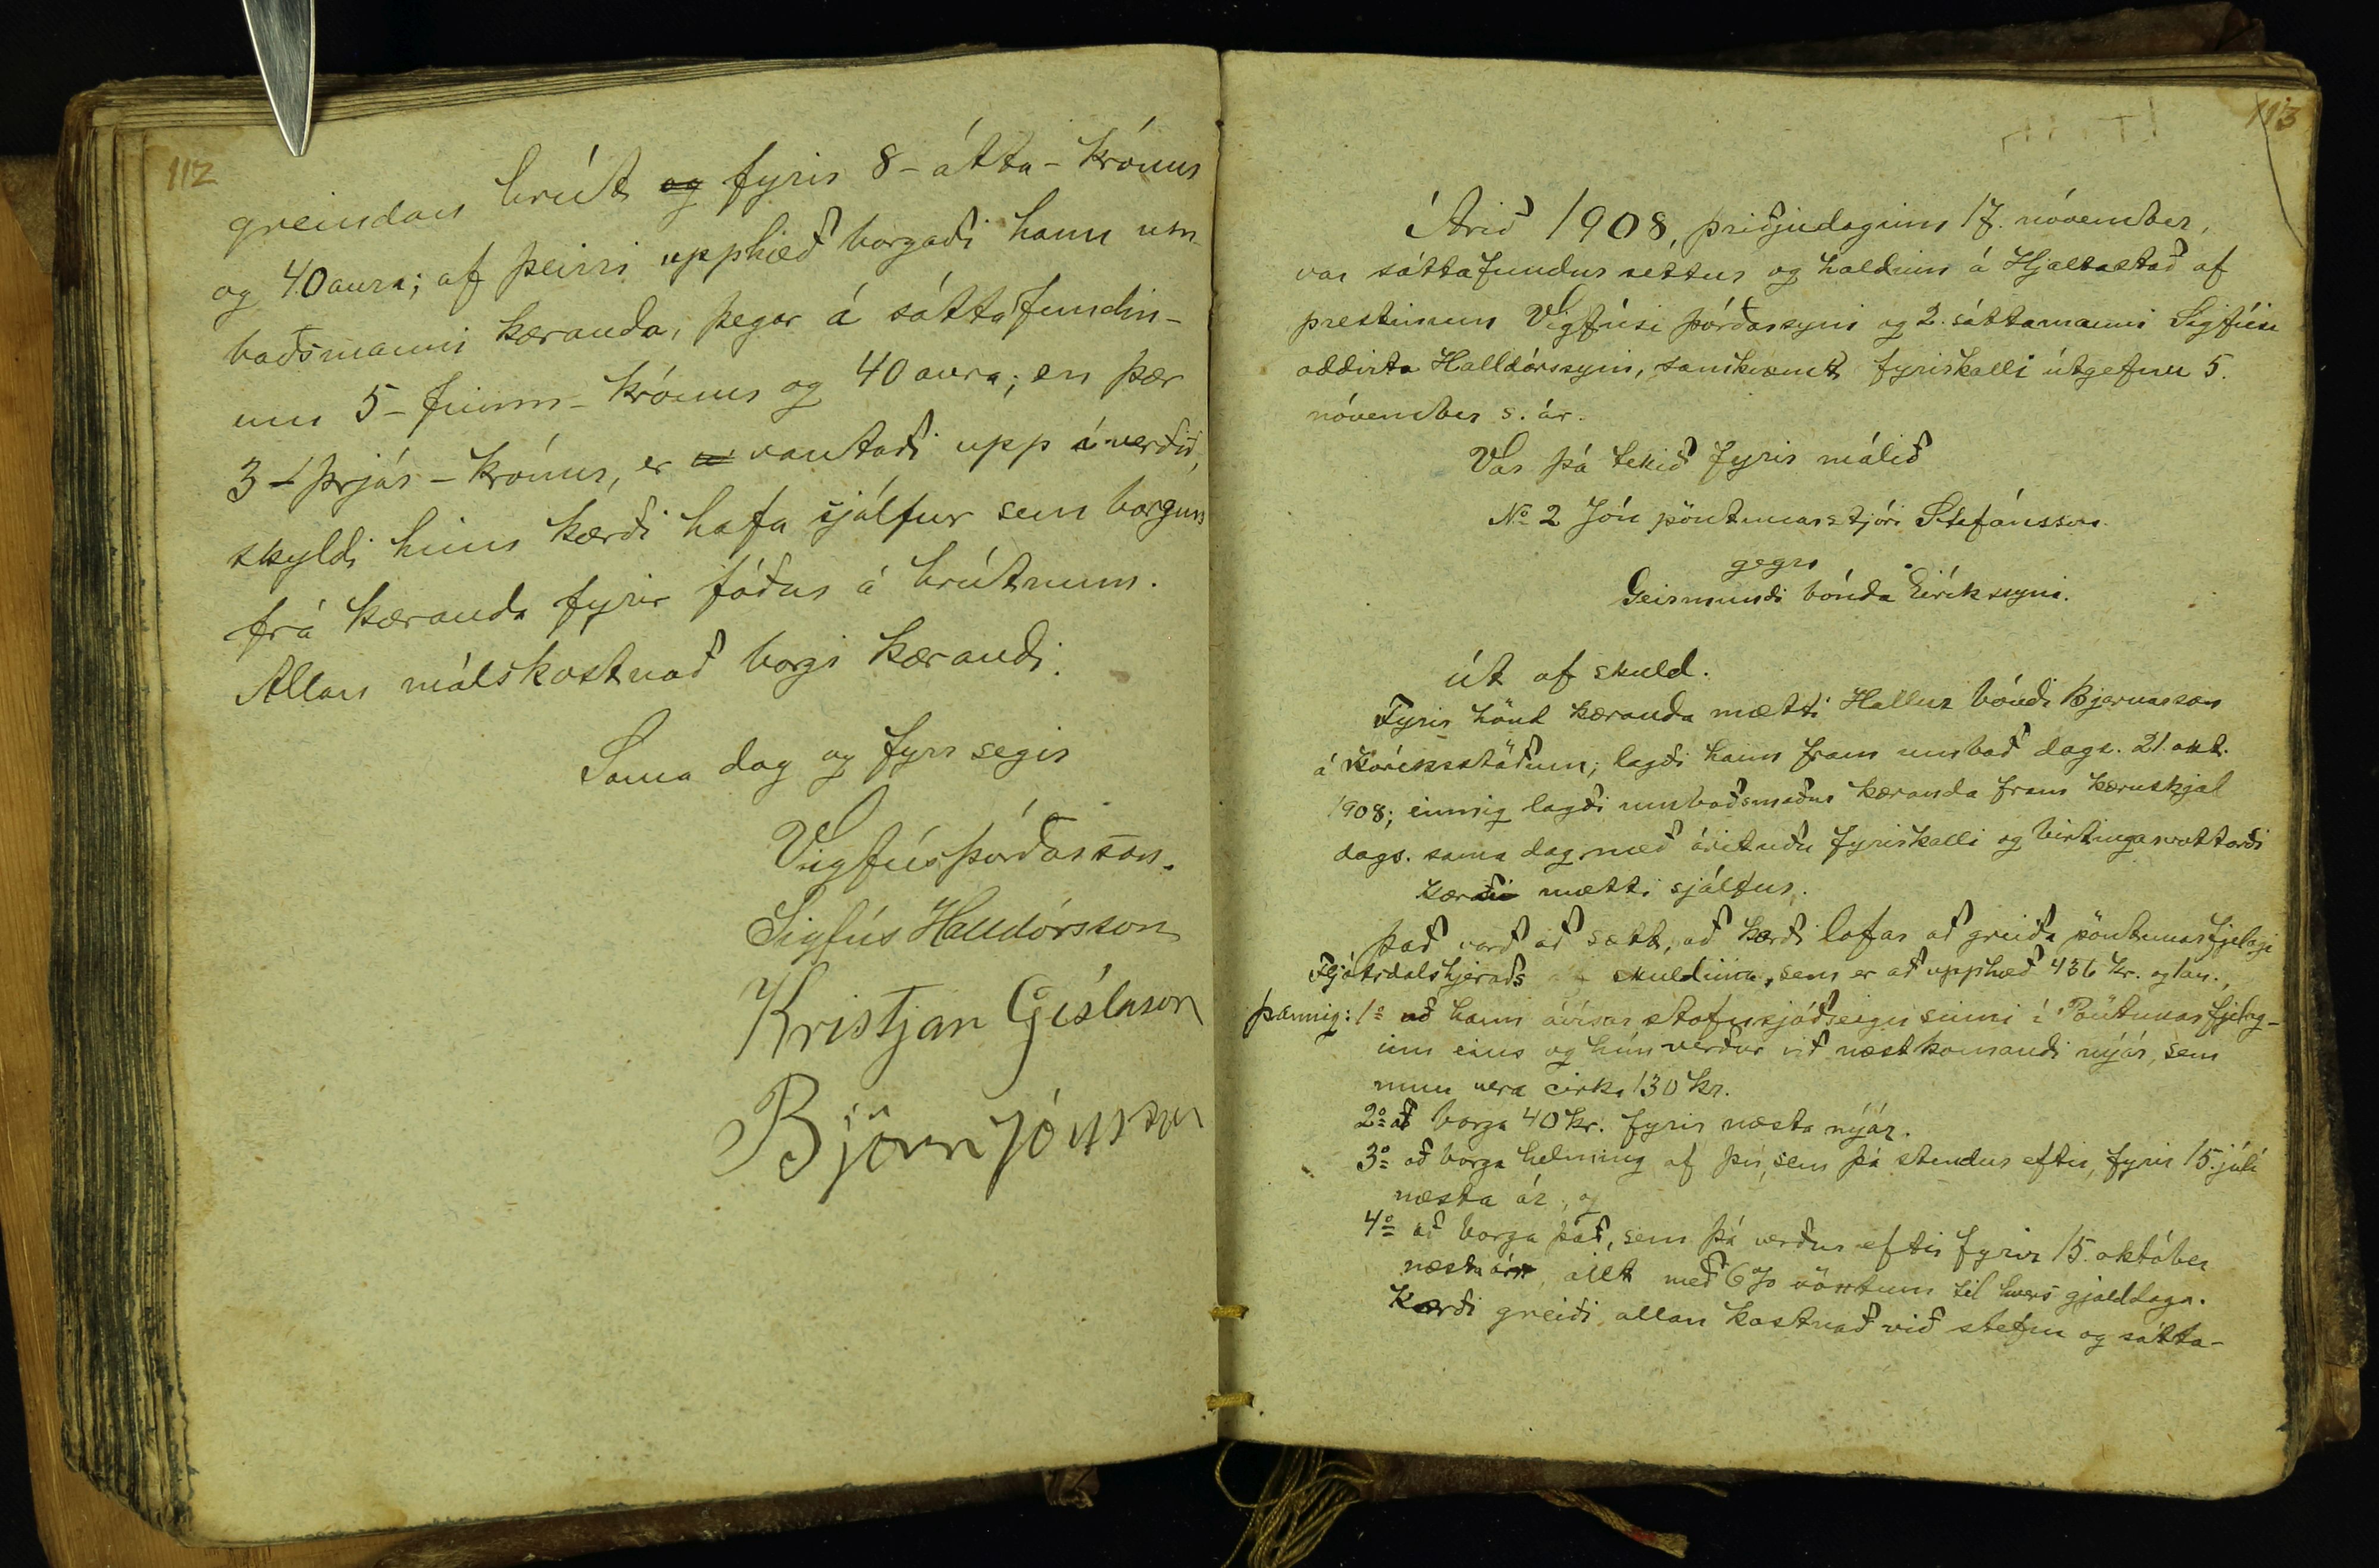 112
greindan hrút og fyrir 8 - átta - krónur
og 40 aura; af þeirri upphæð borgaði hann um-
boðsmanni kæranda, þegar á sáttafundin-
um 5 - fimm - krónur og 40 aura; en þær
3 - þrjár - krónur, er vantaði upp á verðið,
skyldi hinn kærði hafa sjálfur sem borgun
frá kæranda fyrir fóður á hrútnum.
Allan málskostnað borgi kærandi.
Sama dag og fyrr segir
Vigfús Þórðarson.
Sigfús Halldórsson
Kristjan Gíslason
Björn Jónsson
113
Árið 1908, þriðjudaginn 17. nóvember,
var sáttafundur settur og haldinn á Hjaltastað af
prestinum Vigfúsi Þórðarsyni og 2. sáttamanni Sigfúsi
oddvita Halldórssyni, samkvæmt fyrirkalli útgefnu 5.
nóvember s. ár.
Var þá tekið fyrir málið
No 2 Jón pöntunarstjóri Stefánsson
gegn
Geirmundi bónda Eiríkssyni.
út af skuld.
Fyrir hönd kæranda mætti Hallur bóndi Bjarnason
á Kóreksstöðum; lagði hann fram umboð dags. 21. okt.
1908; einnig lagði umboðsmaður kæranda fram kæruskjal
dags. sama dag með árituðu fyrirkalli og birtingarvottorði
Kærði mætti sjálfur.
Það varð að sætt, að kærði lofar að greiða pöntunarfjelagi
Fljótsdalshjeraðs skuldina, sem er að upphæð 436 kr. og lau.,
þannig: 1o að hann ávísar stofnsjóðseign sinni í Pöntunarfjelag-
inu eins og hún verður við næstkomandi nýár, sem
mun vera cirka 130 kr.
2o að borga 40 kr. fyrir næsta nýár.
3o að borga helming af því, sem þá stendur eftir, fyrir 15. júlí
næsta ár, og
4o að borga það, sem þá verður eftir fyrir 15. október
næsta ár, allt með 6% vöxtum til hvers gjalddaga.
Kærði greiði allan kostnað við stefnu og sátta-